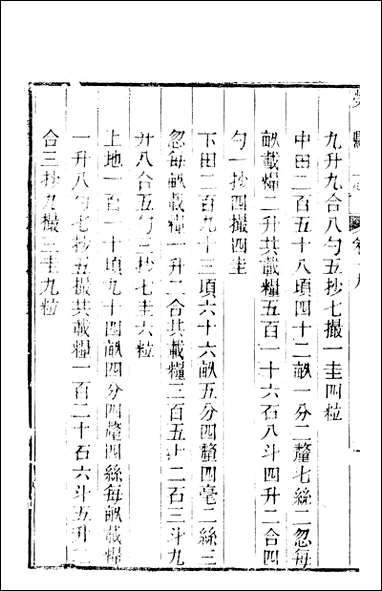 縣
九升九合八勺五抄七撮一圭四粒
中田二百五十八頃四十二畝一分二釐七絲二忽每
畝載糧二升共載糧五百一十六石八斗四升二合四
勺一抄四撮四圭
下田二百九十三頃六十六畝五分四釐四毫二絲三
忽每畝載糧一升二合共載糧三百五十二石三斗九
升八合五勺三抄七圭六粒
上地一百一十頃九十四畝四分四釐四絲每畝載糧
一升八勺七抄五撮共載糧一百二十石六斗五升二
合三抄九撮三圭九粒